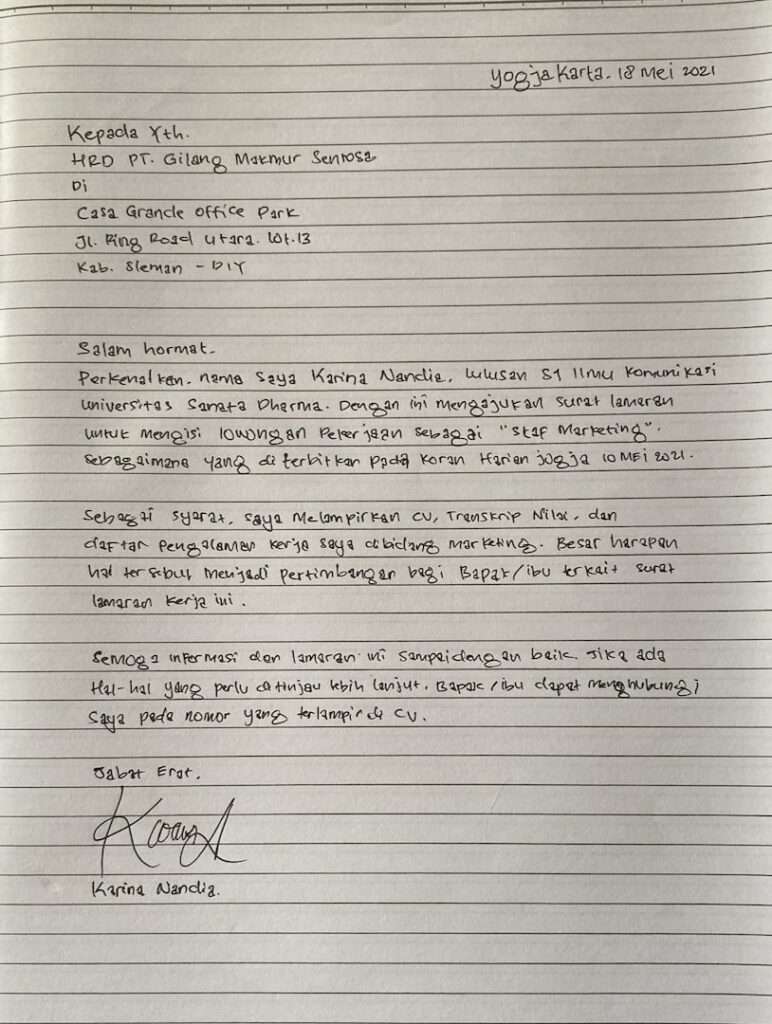 Yogjakarta. 18 Mei 2021
Kepada Yth.
HRD PT. Gilang Makmur Senrosa
Di
Casa Grande Office Park
Jl. Ring Road Utara. Lot.13
Kab. Sleman - DIY
Salam hormat.
Perkenalkan. nama saya Karina Nandia, lulusan S1 Ilmu Komunikasi
Universitas Sanata Dharma. Dengan ini mengajukan surat lamaran
untuk mengisi lowongan Pekerjaan sebagai "Staf Marketing".
Sebagaimana yang diterbitkan pada Koran Harian Jogja 10 MEI 2021.
Sebagai syarat, saya Melampirkan CV, Transkrip Nilai, dan
daftar Pengalaman Kerja saya dibidang marketing. Besar harapan
hal tersebut Menjadi pertimbangan bagi Bapak/ibu terkait surat
lamaran Kerja ini.
Semoga informasi dan lamaran ini sampai dengan baik. Jika ada
Hal-hal yang perlu ditinjau lebih lanjut. Bapak/ibu dapat menghubungi
Saya pada nomor yang terlampir di CV.
Jabat Erat.
Karina Nandia.